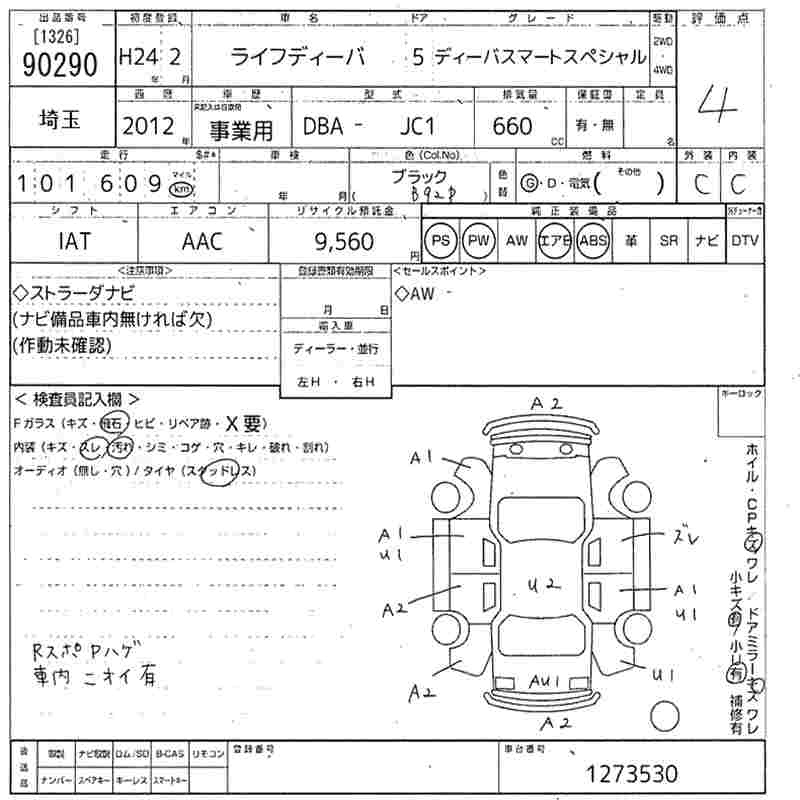 出品番号 初度登録 車名 ドア グレード 駆動 評価点
[1326]
90290 H24年 2月 ライフディーバ 5 ディーバスマートスペシャル 2WD・4WD 4
埼玉 西暦 車歴 型式 排気量 保証書 定員
2012年 事業用 DBA - JC1 660cc 有・無 名
走行 車検 色(Col.No) 燃料 外装 内装
101609 マイル km 年 月 ブラック (B92P) 色替 G・D・電気(その他) C C
シフト エアコン リサイクル預託金 純正装備品
IAT AAC 9,560円 PS PW AW エアB ABS 革 SR ナビ DTV
<注意事項> 登録書類有効期限 <セールスポイント>
◇ストラーダナビ ◇AW
(ナビ備品車内無ければ欠) 月 日
(作動未確認) 輸入車
ディーラー・並行
左H ・ 右H
< 検査員記入欄 > ホーロック
Fガラス(キズ・飛石・ヒビ・リペア跡・X要)
内装(キズ・スレ・汚れ・シミ・コゲ・穴・キレ・破れ・割れ)
オーディオ(無し・穴)/タイヤ(スタッドレス)
A2
A1
A1
U1
ズレ
U2
A2
A1
U1
Rスポ Pハゲ
車内 ニオイ有
A2
AU1
U1
A2
ホイル・CPキズワレ ドアミラーキズワレ
小キズ有/小U有 補修有
後送品 取説 ナビ取説 ロム/SD B-CAS リモコン 登録番号 車台番号
ナンバー スペアキー キーレス スマートキー 1273530